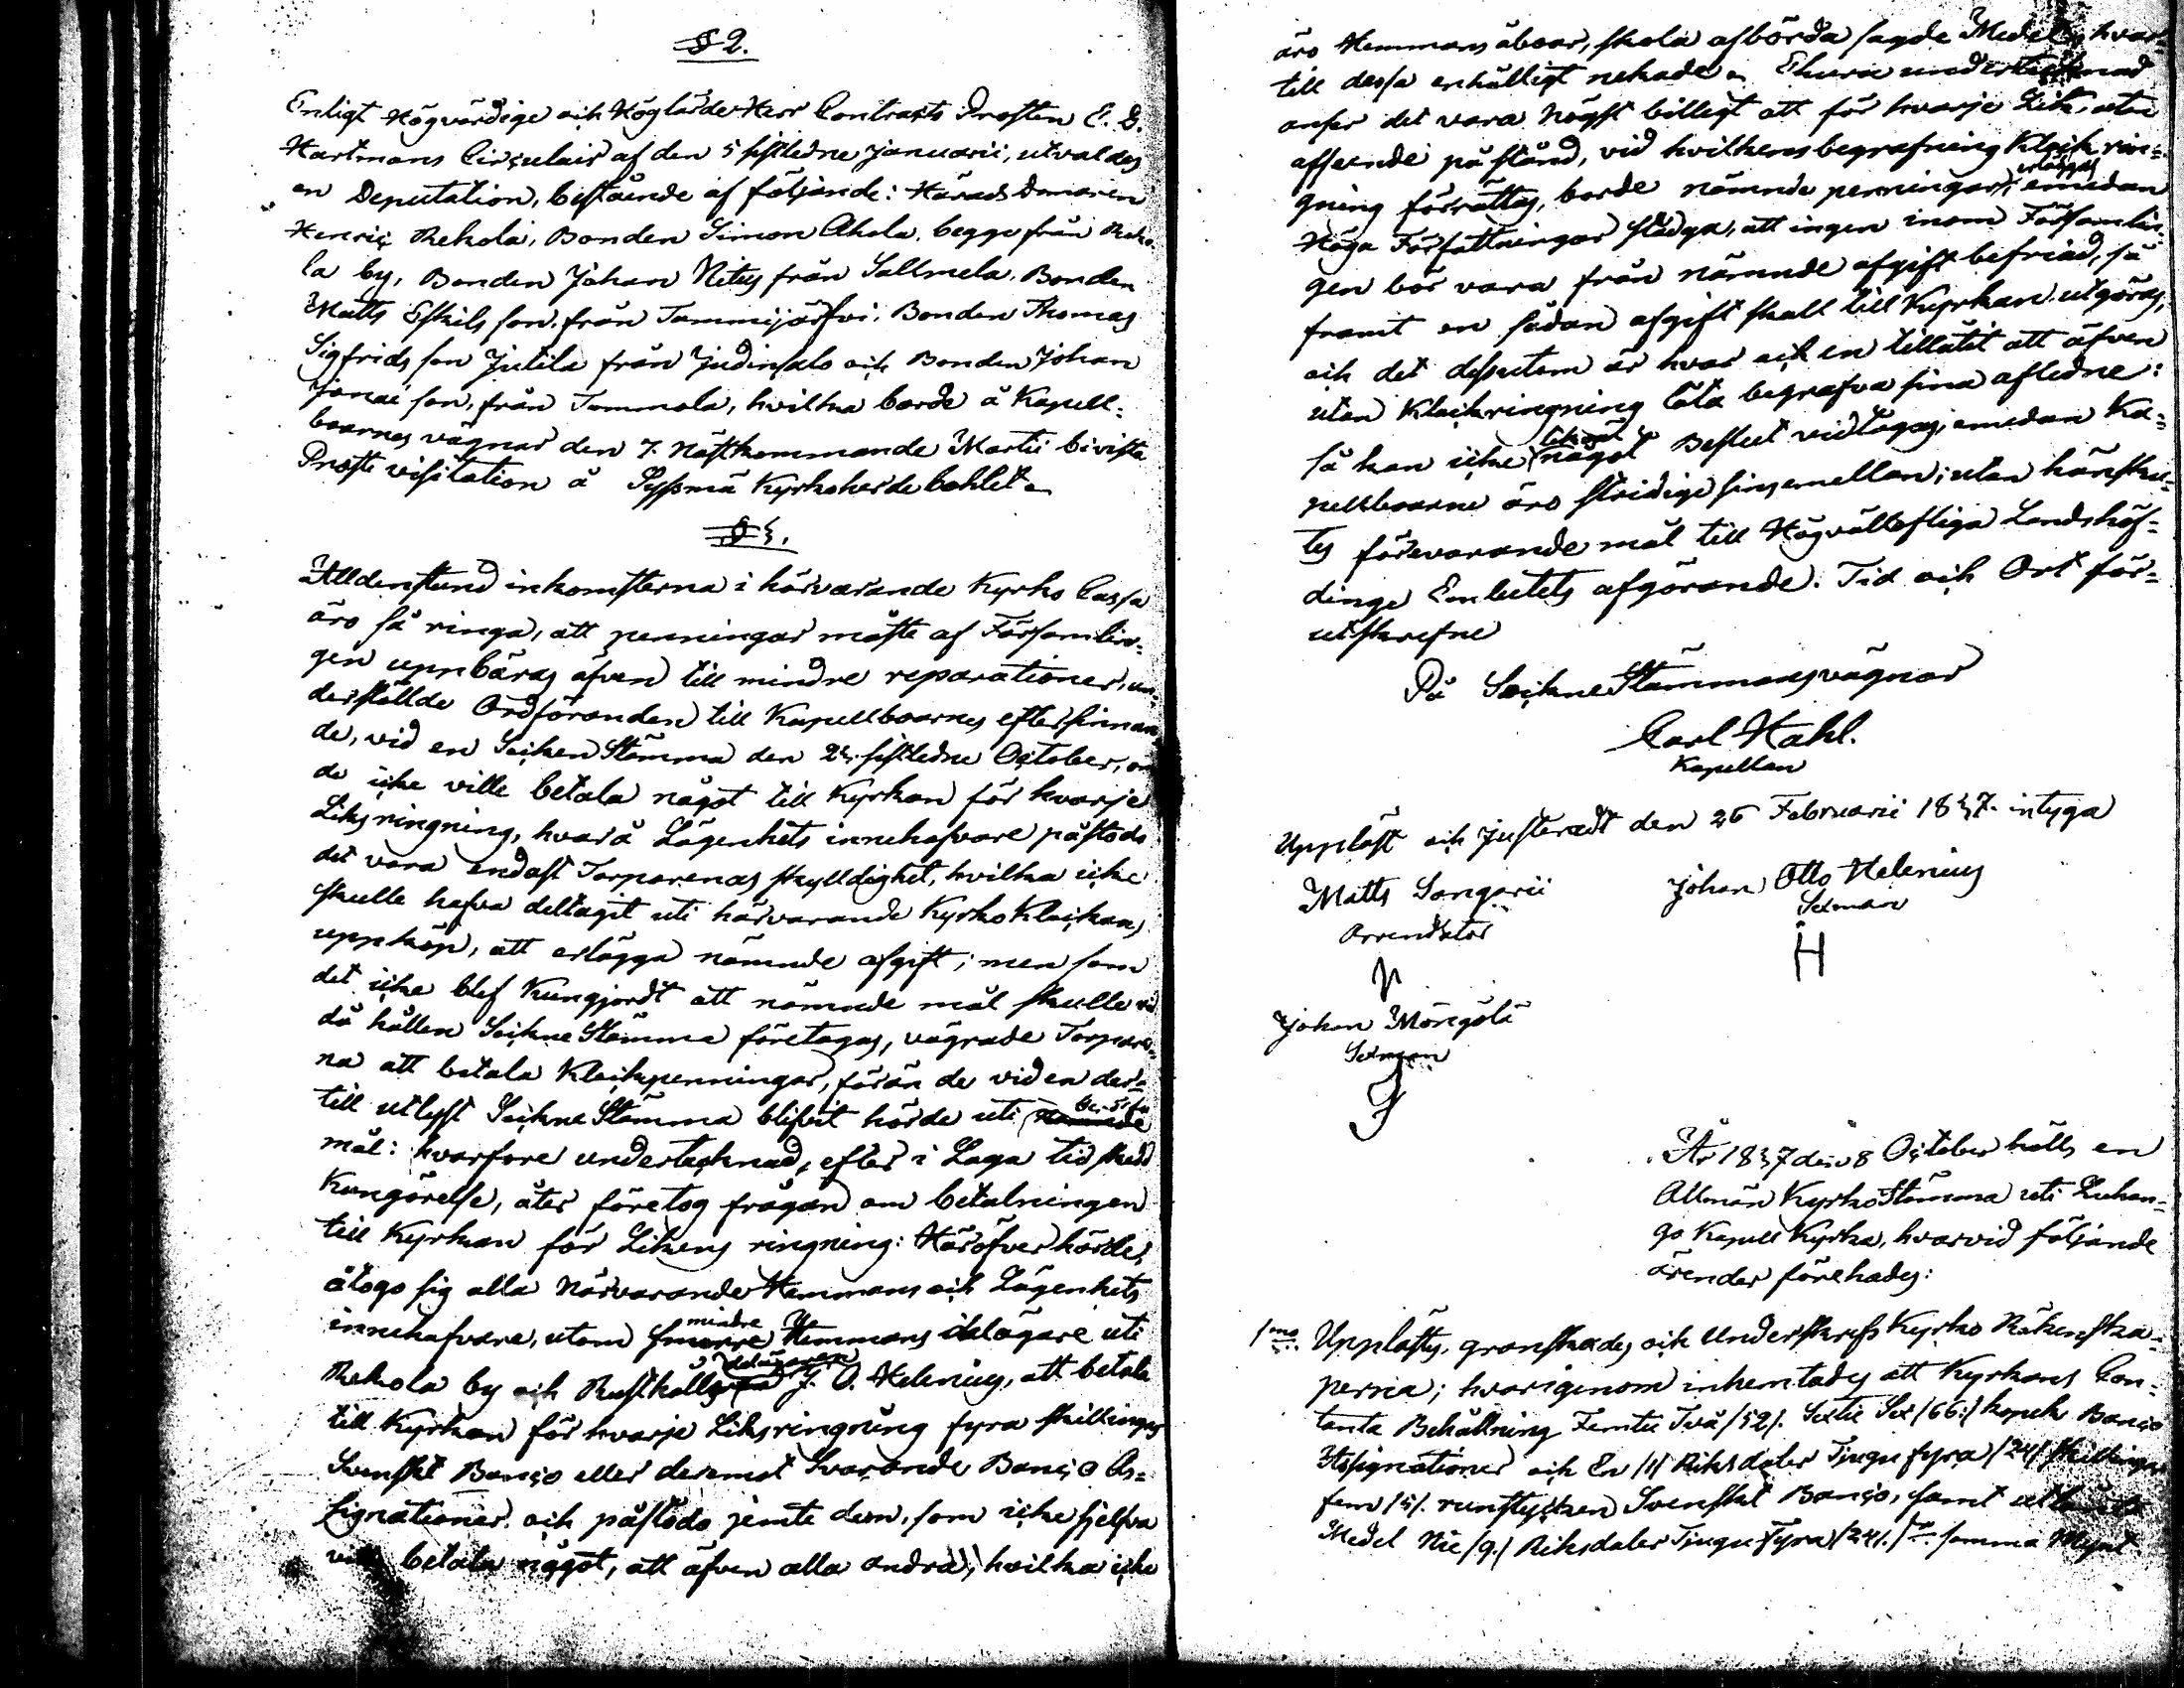 § 2.
Enligt Högvördige och Höglärde Herr Contracts Prosten E. G.
Hartmans Circulair af den 5 sistledne Januarii, utvaldes
en Deputation, bestående af följande: Härads Domaren
Henric Rekola, Bonden Simon Ahola, begge från Reko-
la by, Bonden Johan Nitus från Sallmela, Bonden
Matts Eskils son, från Tammijärfvi, Bonden Thomas
Sigfrids son Jutila från Judinsalo och Bonden Johan
Jonae son, från Tommola, hvilka borde å Kapell-
boarnes vägnar den 7. nästkommande Martii bivista
Prosts visitation å Sysmä Kyrkoherde bohlet.
§ 3.
Alldenstund inkomsterna i härvarande Kyrko Cassa
äro så ringa, att penningar måste af Församlin-
gen uppbäras äfven till mindre reparationer, un-
derställde Ordföranden till Kapellboarnes eftersinnan-
de, vid en Sockne Stämma den 23. sistledne October, om
de icke ville betala något till Kyrkan för hvarje
Liksringning, hvarå Lägenhets innehafvare påstodo
det vara endast Torparenas skylldighet, hvilka icke
skulle hafva deltagit uti härvarande Kyrko Klockans
uppköp, att erlägga nämnde afgift; men som
det icke blef Kungjordt att nämnde mål skulle vid
då hållen Sockne Stämma företagas, vägrade Torpare-
na att betala Klockpenningar, förän de vid en der-
till utlyst Sockne Stämma blifvit hörde uti berörde
mål: hvarfore undertecknad, efter i Laga tid skedd
Kungörelse, åter företog frågan om betalningen
till Kyrkan för Likens ringning: Häröfver hörde,
åtogo sig alla Närvarande Hemmans och Lägenhets
innehafvare, utom smärre mindre Hemmans delägare uti
Rekola by och Rusthålls delägaren J. O. Helenius, att betala
till Kyrkan för hvarje Liksringning fyra skillingar
Svenskt Banco eller deremot Svarande Banco As-
signationer, och påstodo jemte dem, som icke sjelfva
ville betala något, att äfven alla andra, hvilka icke
äro Hemmans åboar, skola afbörda sagde Medel, hvar-
till dessa enhälligt nekade. Ehuru undertecknad
anser det vara högst billigt att för hvarje Lik, utan
afseende på stånd, vid hvilkens begrafning Klock rin-
gning förrättas, borde nämnde penningar erläggas, emedan
Höga Författningar stadga, att ingen inom Församlin-
gen bör vara från nämnde afgift befriad, så
framt en sådan afgift skall till Kyrkan utgöras,
och det dessutom är hvar och en tillåtit att äfven
utan Klockringning låta begrafva sina afledne:
så kan icke likväl något Beslut vidtagas, emedan Ka-
pellboarne äro stridige sins emellan; utan hänskju-
tes förevarande mål till Högvällofliga Landshöf-
dinge Embetets afgörande. Tid och Ort för-
utskrefne
På Sockne Stämmans vägnar
Carl Hahl.
Kapellan
Uppläst och Justeradt den 26 Februarii 1837. intyga
Matts Sangarii
Arrendator
Johan Otto Helenius
Sexman
H
Johan Mörigölä
Sexman
År 1837 den 8 October hölts en
Allmän Kyrko Stämma uti Luhan-
go Kapell Kyrka, hvarvid följande
ärender förehades:
1mo. Upplästes, granskades och Underskrefs Kyrko Räkenska-
perna; hvarigenom inhemtades att Kyrkans Con-
tanta Behållning Femtio Två /52/. Sextio Sex /66:/ kopek Banco
Assignationer och En /1/ Riksdaler Tjugu fyra /24/ skillingar
fem /5/. runstycken Svenskt Banco, samt utlånte
Medel Nie /9./ Riksdaler Tjugu Fyra /24/. samma Mynt